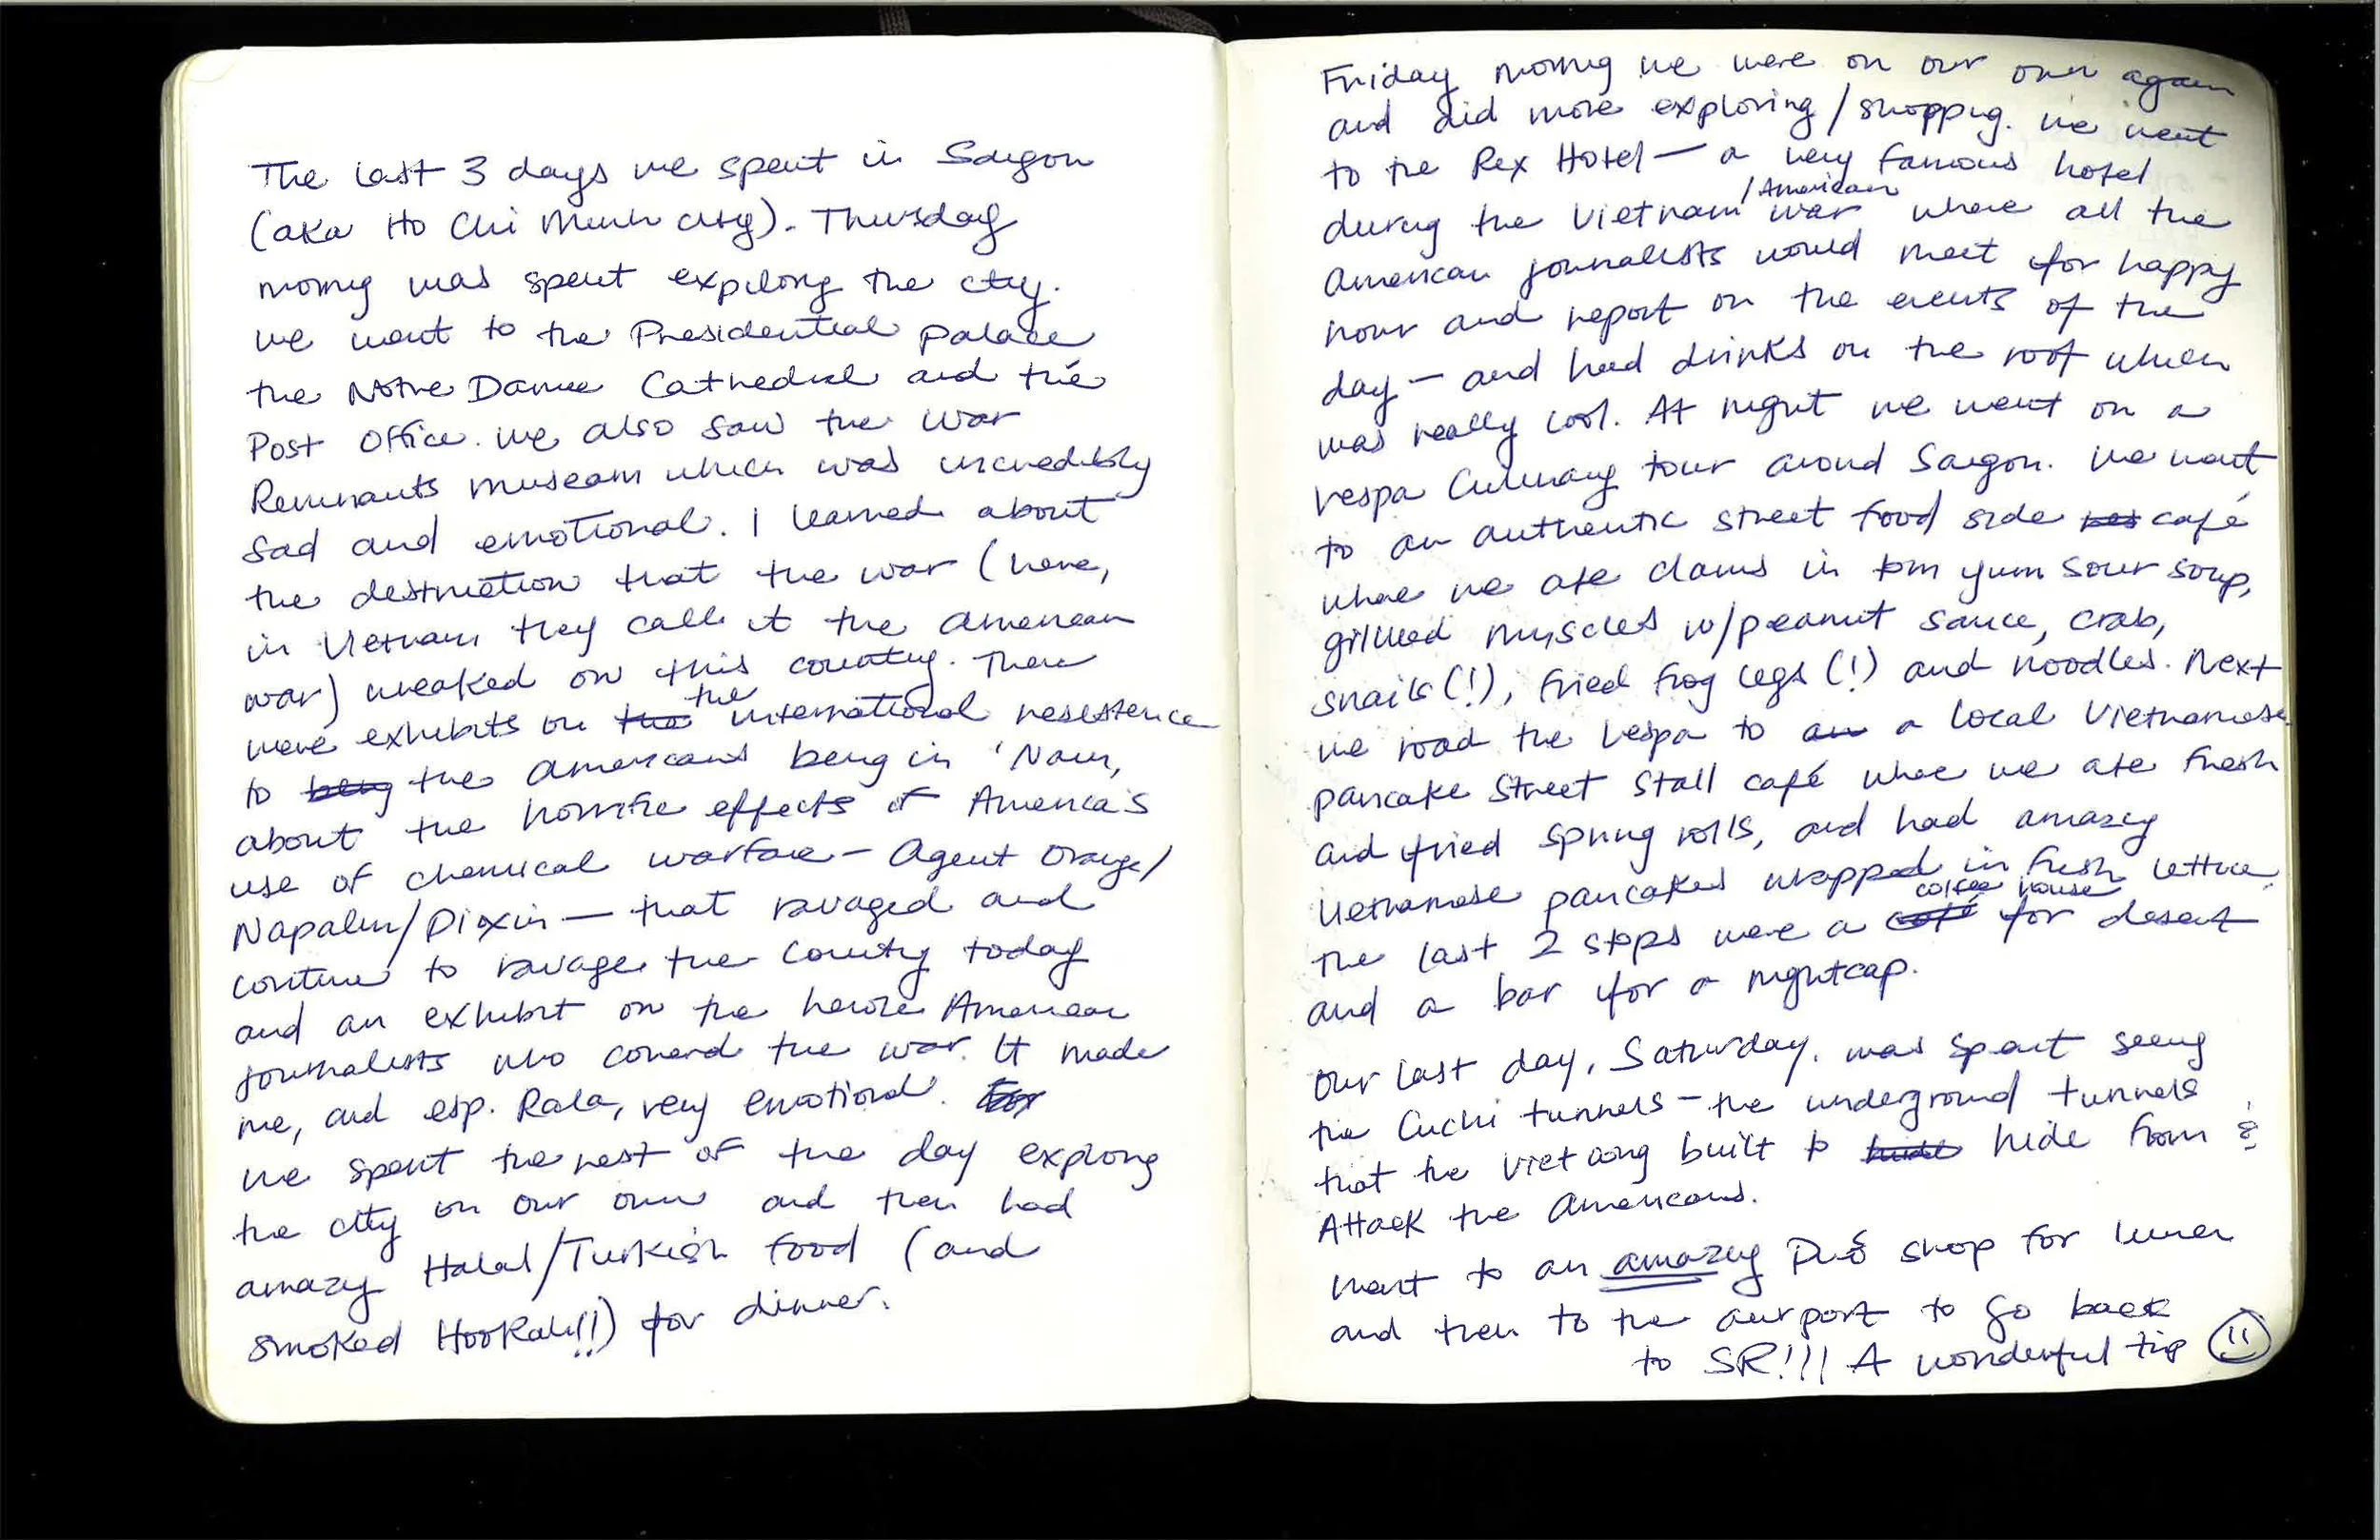 The last 3 days we spent in Saigon
(aka Ho Chi Minh city). Thursday
morning was spent exploring the city.
we went to the Presidential palace
the Notre Dame Cathedral and the
Post Office. we also saw the War
Remnants museam which was incredibly
sad and emotional. I learned about
the destruction that the war (here,
in Vietnam they call it the American
war) wreaked on this country. There
were exhibits on the international resestence
to the Americans being in 'Nam,
about the horrific effects of America's
use of chemical warfare - Agent Orange/
Napalm/Dioxin — that ravaged and
continue to ravage the country today
and an exhibit on the heroic American
journalists who covered the war. It made
me, and esp. Rala, very emotional.
we spent the rest of the day exploring
the city on our own and then had
amazing Halal/Turkish food (and
smoked Hookah!!) for dinner.
Friday morning we were on our own again
and did more exploring/shopping. we went
to the Rex Hotel — a very famous hotel
during the Vietnam/American war where all the
American journalists would meet for happy
hour and report on the events of the
day — and had drinks on the roof which
was really cool. At night we went on a
vespa Culinary tour around Saigon. we went
to an authentic street food side café
where we ate clams in tom yum sour soup,
grilled muscles w/peanut sauce, crab,
snails(!), fried frog legs (!) and noodles. Next
we road the vespa to a local Vietnamese
pancake street stall café where we ate fresh
and fried spring rolls, and had amazing
Vietnamese pancakes wrapped in fresh lettuce.
The last 2 stops were a coffee house for desert
and a bar for a nightcap.
Our last day, Saturday, was spent seeing
the Cuchi tunnels - the underground tunnels
that the Viet cong built to hide from &
Attack the Americans.
Went to an amazing Phở shop for lunch
and then to the airport to go back
to SR!!! A wonderful trip